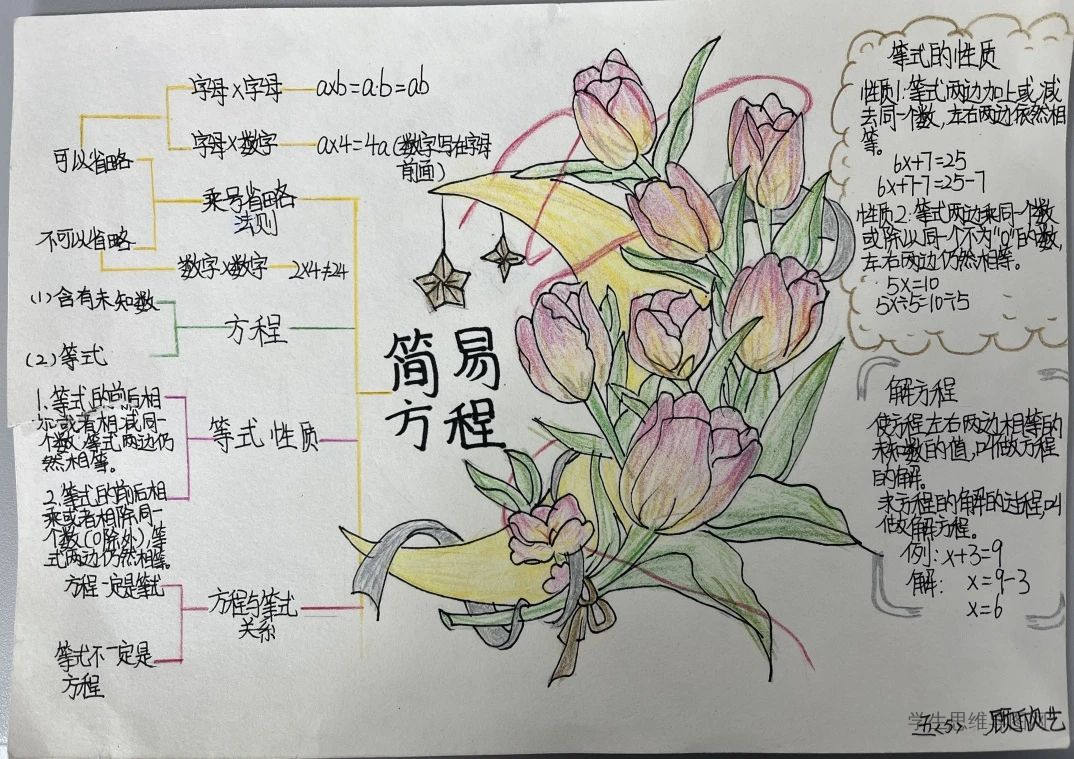 字母×字母 a×b=a·b=ab
字母×数字 a×4=4a(数字写在字母
前面)
可以省略
乘号省略
法则
不可以省略
数字×数字 2×4≠24
(1)含有未知数
方程
(2)等式
1.等式的前后相
加或者相减同一
个数,等式两边仍
然相等。
等式性质
2.等式的前后相
乘或者相除同一
个数(0除外),等
式两边仍然相等。
方程一定是等式
方程与等式
关系
等式不一定是
方程
简易
方程
等式的性质
性质1:等式两边加上或减
去同一个数,左右两边依然相
等。
6x+7=25
6x+7-7=25-7
性质2:等式两边乘同一个数
或除以同一个不为"0"的数,
左右两边仍然相等。
5x=10
5x÷5=10÷5
解方程
使方程左右两边相等的
未知数的值,叫做方程
的解。
求方程的解的过程,叫
做解方程。
例:x+3=9
解: x=9-3
x=6
学生思维
五<5> 顾欣艺